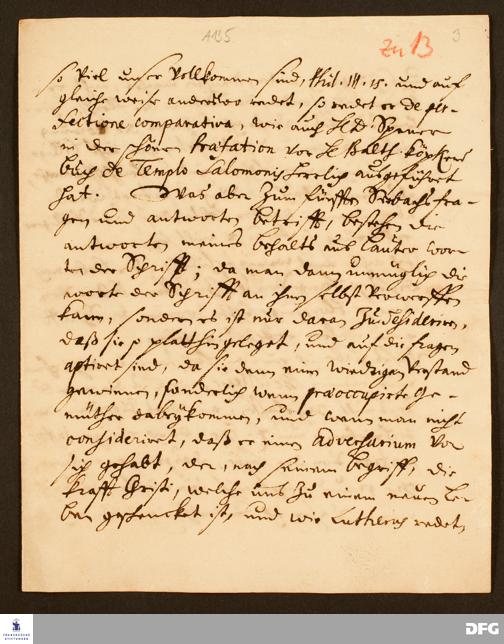 A135
zu 13
3
so viel unser vollkommen sind, Phil. III. 15. und auf
gleiche weise anderswo redet, so redet er de per-
fectione comparativa, wie auch H. D. Spener
in der schönen Præfation vor H. Balth. Köpkens
buch de Templo Salomonis herrlich ausgeführet
hat. Was aber zum fünfften Seebachs fra-
gen und antworten betrifft, bestehen die
antworten meines behalts aus lauter wor-
ten der Schrifft; da man dann unmüglich die
worte der Schrifft an ihm selbst verwerffen
kann, sondern es ist nur daran zu desideriren,
daß sie so platthin geleget, und auf die fragen
aptiret sind, da sie dann einen wiedrigen Verstand
gewinnen, sonderlich wenn præoccupirte Ge-
müther dabey kommen, und wenn man nicht
consideriret, daß er einen adversarium vor
sich gehabt, der, nach seinem begriff, die
Krafft Christi, welche uns zu einem neuen Le-
ben geschencket ist, und wie Lutherus redet,
FRANCKESCHE
STIFTUNGEN
DFG